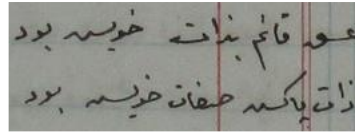 عشق قائم بذات خویش بود
ذات پاکش صفات خویش بود